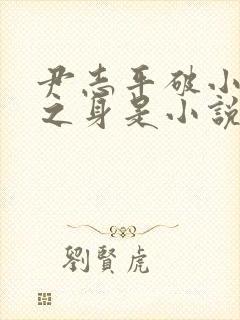 尹志平破小
之身是小說
劉賢虎